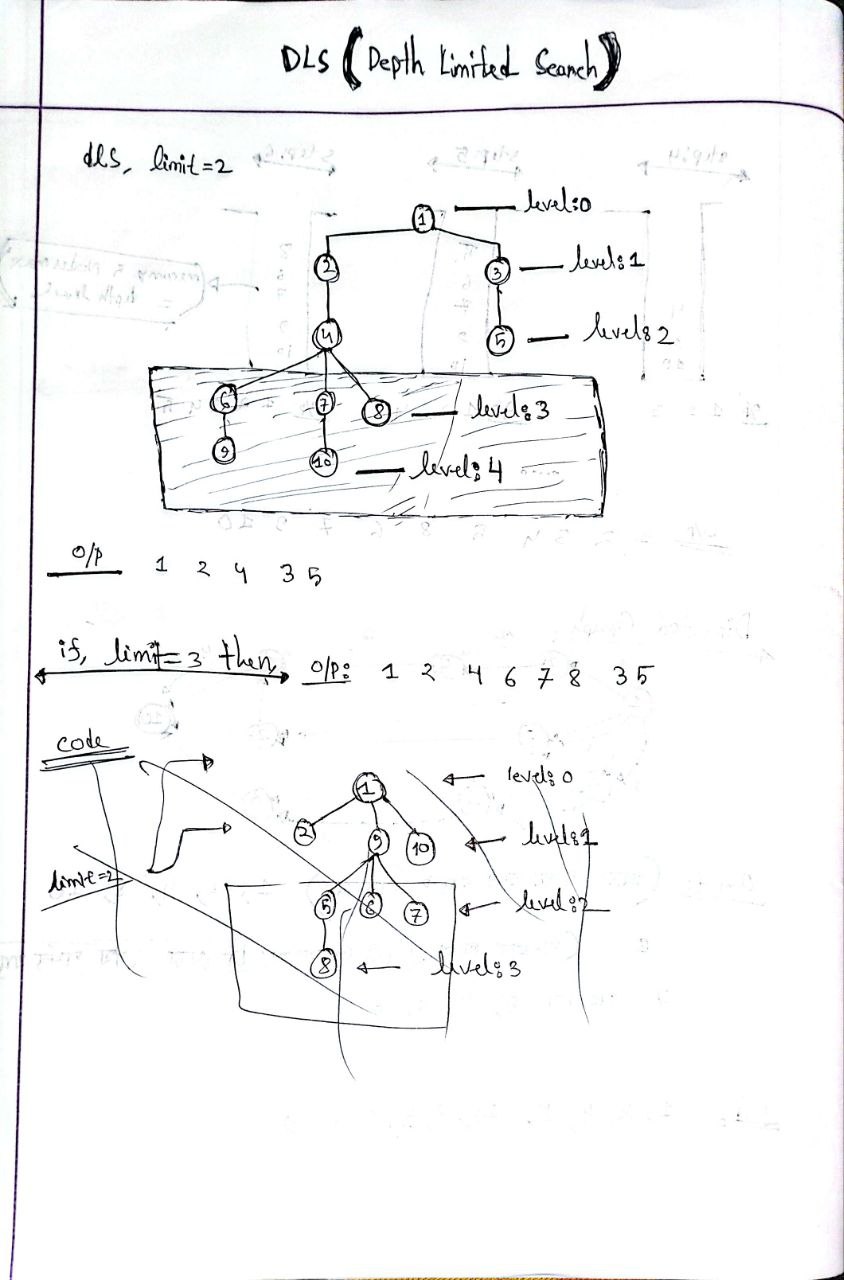 DLS (Depth Limited Search)
dls, limit=2
1 level:0
2 3 level:1
4 5 level:2
6 7 8 level:3
9 10 level:4
O/P 1 2 4 3 5
if, limit=3 then, O/P: 1 2 4 6 7 8 3 5
code
1 level:0
2 9 10 level:1
limit=2
5 6 7 level:2
8 level:3